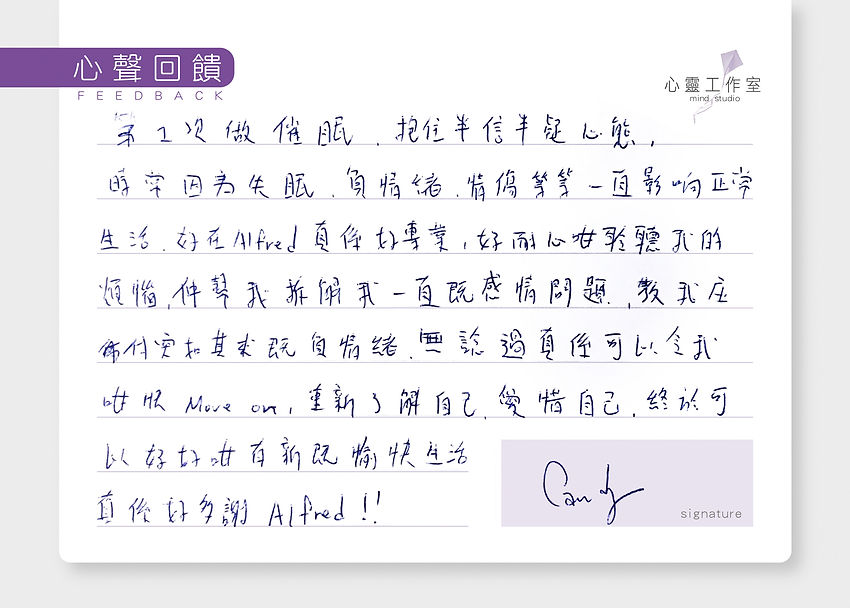 心聲回饋
FEEDBACK
心靈工作室
mind studio
第1次做催眠，抱住半信半疑心態，
時常因為失眠，負情緒，情傷等等一直影响正常
生活，好在Alfred真係好專業，好耐心咁聆聽我的
煩惱，仲幫我拆解我一直既感情問題，教我
突如其來既負情緒，無諗過真係可以令我
咁快 Move on，重新了解自己，愛惜自己，終於可
以好好咁有新既愉快生活
真係好多謝 Alfred!!
Candy
signature